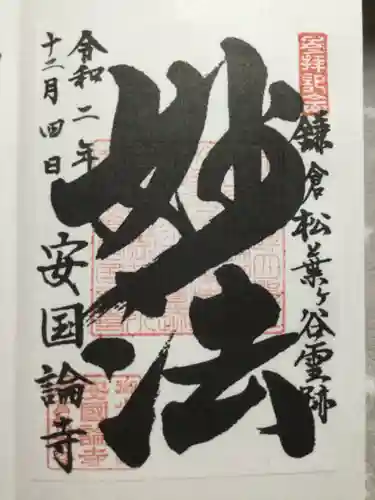 登拝記念
鎌倉松葉ヶ谷霊跡
妙法
令和二年
十二月四日
安国論寺
安國論寺